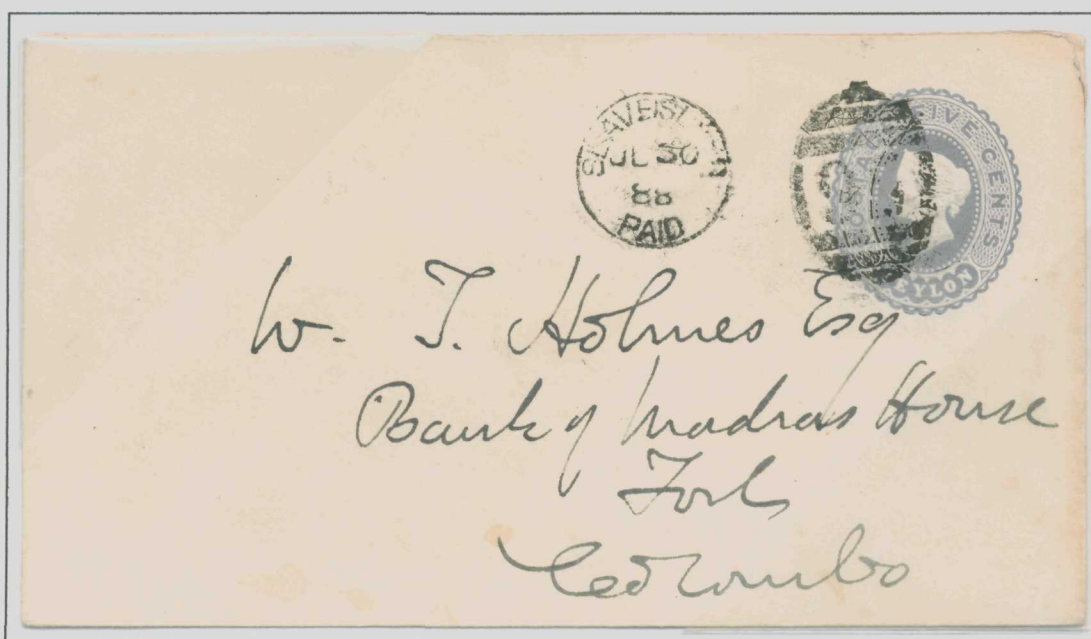 SLAVE ISLAND
JL 30
88
PAID
POSTAGE FIVE CENTS
CEYLON
W. T. Holmes Esq
Bank of Madras House
Fort
Colombo